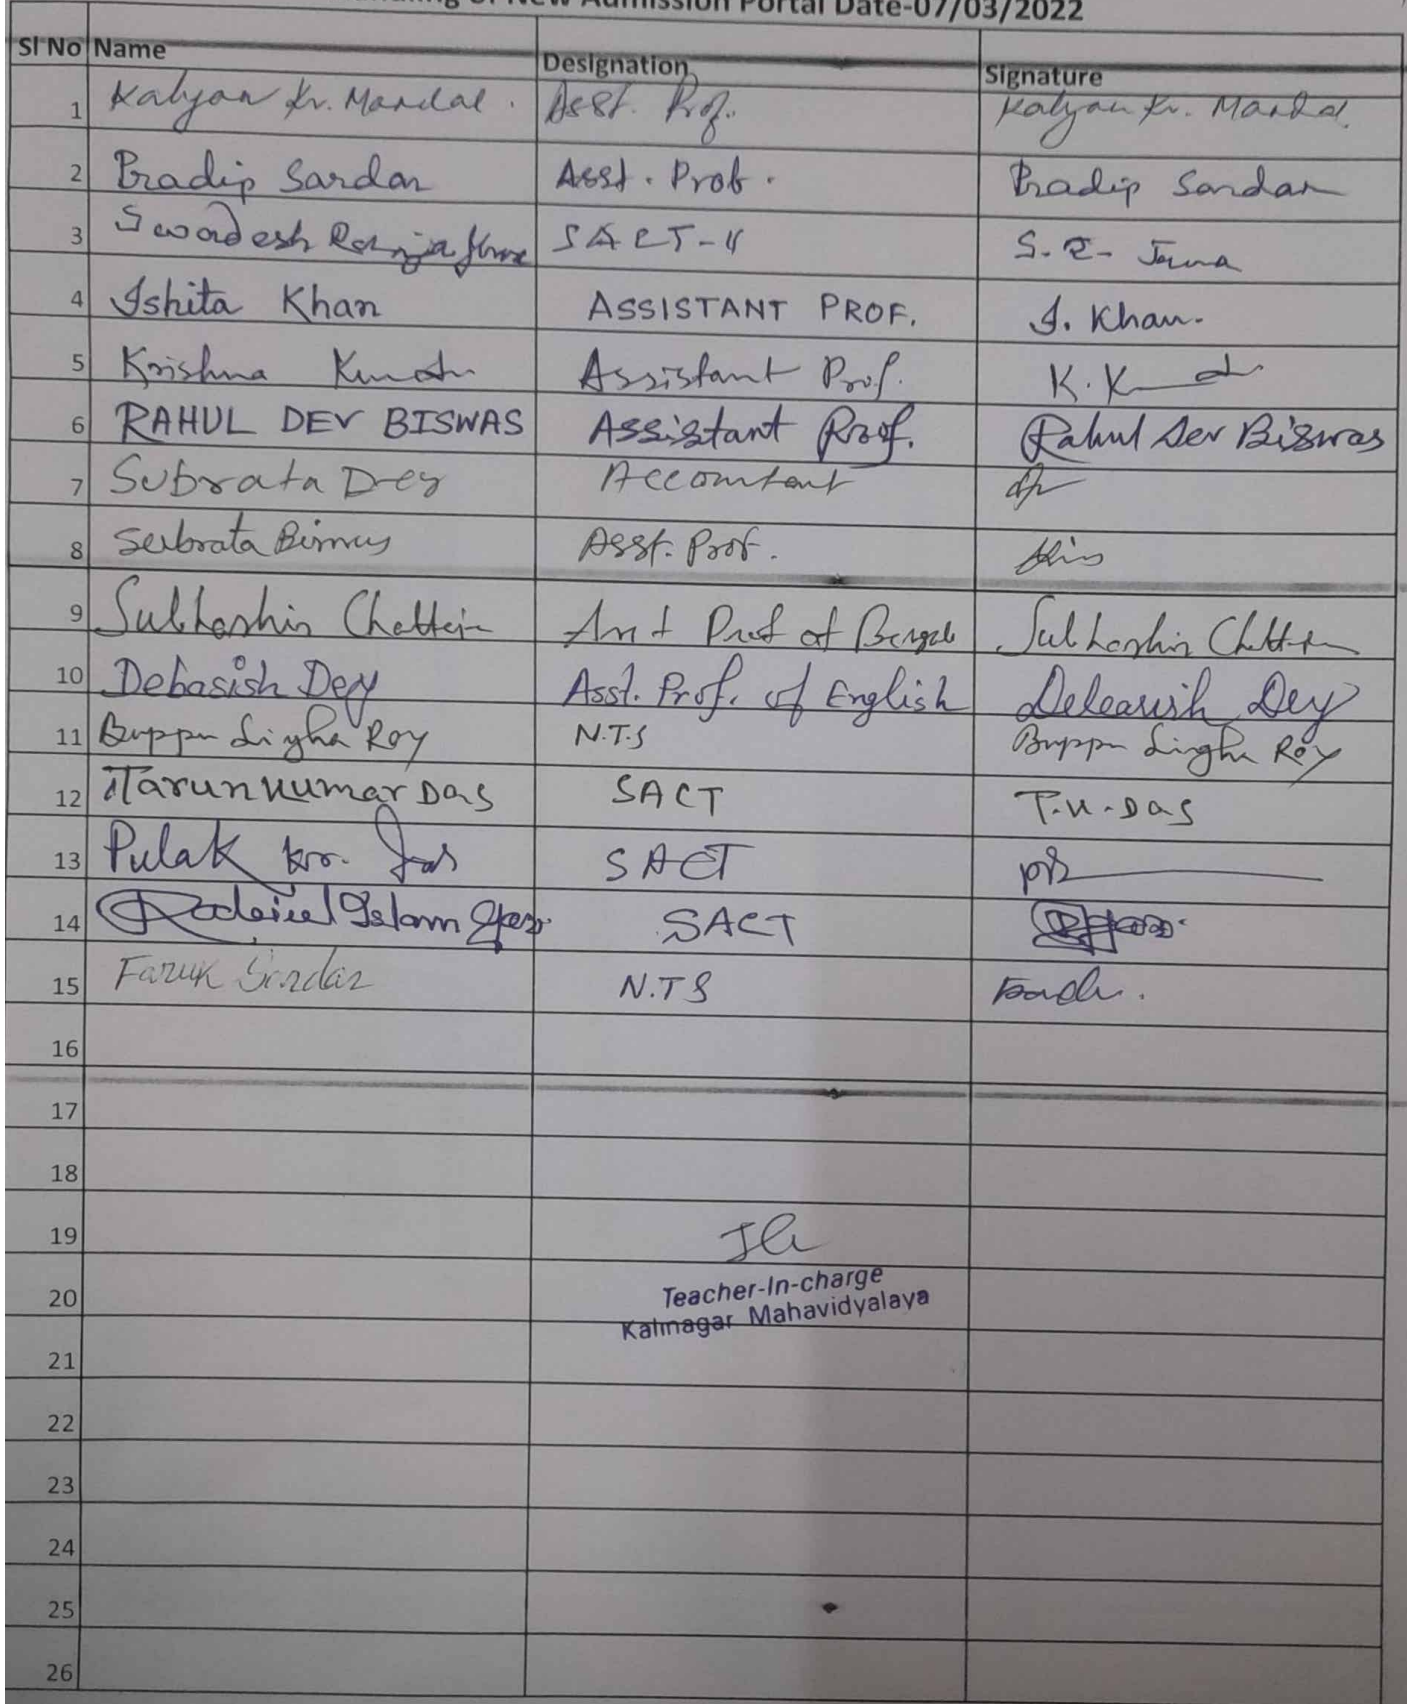 of New Admission Portal Date-07/03/2022
Sl No Name Designation Signature
1 Kalyan Kr. Mandal. Asst. Prof. Kalyan Kr. Mandal.
2 Pradip Sardar Asst. Prof. Pradip Sardar
3 Swadesh Ranjan Jana SACT-II S. R. Jana
4 Ishita Khan ASSISTANT PROF. I. Khan.
5 Krishna Assistant Prof. K. K
6 RAHUL DEV BISWAS Assistant Prof. Rahul Dev Biswas
7 Subrata Dey Accountant
8 Subrata Biswas Asst. Prof.
9 Subhashis Asst Prof of Bengali Subhashis
10 Debasish Dey Asst. Prof. of English Debasish Dey
11 Singha Roy N.T.S Singha Roy
12 Tarun Kumar Das SACT T.K.Das
13 Pulak Kr. Das SACT
14 Islam SACT
15 Faruk Sardar N.T.S
16
17
18
19
Teacher-In-charge
20
Kalinagar Mahavidyalaya
21
22
23
24
25
26